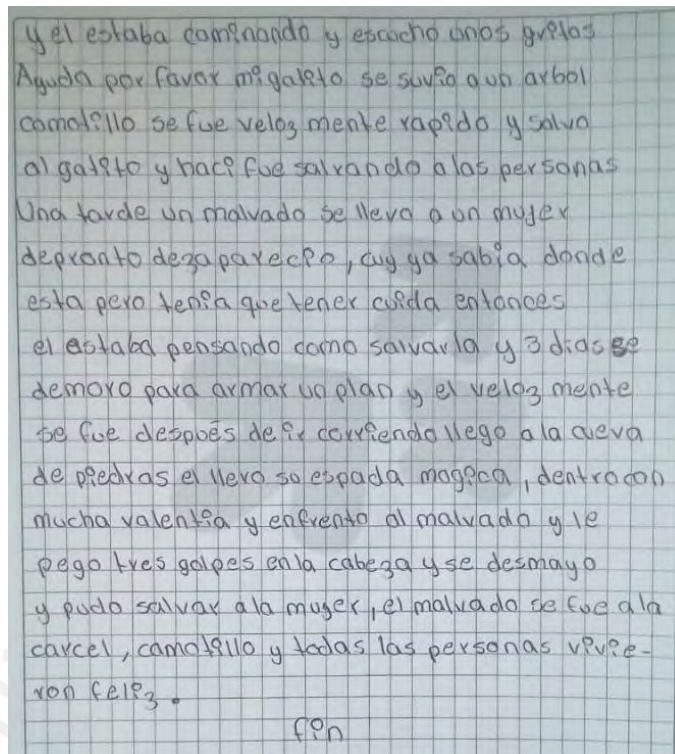 y el estaba caminando y escucho unos gritos
Ayuda por favor mi gatito se suvio a un arbol
camotillo se fue veloz mente rapido y salvo
al gatito y haci fue salvando a las personas
Una tarde un malvado se llevo a un mujer
depronto dezaparecio, cuy ya sabia donde
esta pero tenia que tener cuida entonces
el estaba pensando como salvarla y 3 dias se
demoro para armar un plan y el veloz mente
se fue despues de ir corriendo llego a la cueva
de piedras el llevo so espada magica, dentro con
mucha valentia y enfrento al malvado y le
pego tres golpes en la cabeza y se desmayo
y pudo salvar ala muger, el malvado se fue ala
carcel, camotillo y todas las personas vivie-
ron feliz.
fin